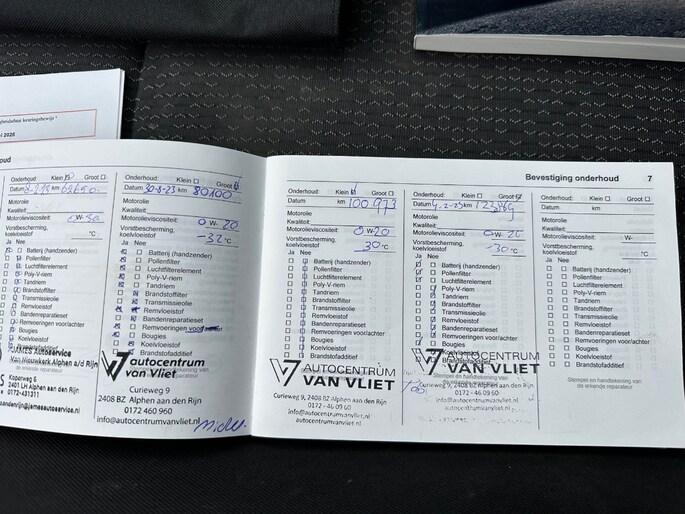 Bevestiging onderhoud 7
Onderhoud: Klein Groot
Datum km
Motorolie
Kwaliteit:
Motorolieviscositeit:
Vorstbescherming,
koelvloeistof °C
Ja Nee
Batterij (handzender)
Pollenfilter
Luchtfilterelement
Poly-V-riem
Tandriem
Brandstoffilter
Transmissieolie
Remvloeistof
Bandenreparatieset
Remvoeringen voor/achter
Bougies
Koelvloeistof
James Autoservice
Koperweg 6
2401 LH Alphen a/d Rijn
0172-431311
Onderhoud: Klein Groot
Datum 30-8-23 km 80100
Motorolie
Kwaliteit:
Motorolieviscositeit: 0 W- 20
Vorstbescherming,
koelvloeistof -32 °C
Ja Nee
Batterij (handzender)
Pollenfilter
Luchtfilterelement
Poly-V-riem
Tandriem
Brandstoffilter
Transmissieolie
Remvloeistof
Bandenreparatieset
Remvoeringen voor/achter
Bougies
Koelvloeistof
Brandstofadditief
autocentrum
van Vliet
Curieweg 9
2408 BZ Alphen aan den Rijn
0172 460 960
Onderhoud: Klein Groot
Datum km 100.973
Motorolie
Kwaliteit:
Motorolieviscositeit: 0 W-20
Vorstbescherming,
koelvloeistof 30 °C
Ja Nee
Batterij (handzender)
Pollenfilter
Luchtfilterelement
Poly-V-riem
Tandriem
Brandstoffilter
Transmissieolie
Remvloeistof
Bandenreparatieset
Remvoeringen voor/achter
Bougies
Koelvloeistof
Brandstofadditief
AUTOCENTRUM
VAN VLIET
Curieweg 9, 2408 BZ Alphen aan den Rijn
0172 - 46 09 60
info@autocentrumvanvliet.nl
autocentrumvanvliet.nl
Onderhoud: Klein Groot
Datum km
Motorolie
Kwaliteit:
Motorolieviscositeit: 0 W- 20
Vorstbescherming,
koelvloeistof -30 °C
Ja Nee
Batterij (handzender)
Pollenfilter
Luchtfilterelement
Poly-V-riem
Tandriem
Brandstoffilter
Transmissieolie
Remvloeistof
Bandenreparatieset
Remvoeringen voor/achter
Bougies
Koelvloeistof
Brandstofadditief
AUTOCENTRUM
VAN VLIET
Curieweg 9, 2408 BZ Alphen aan den Rijn
0172 - 46 09 60
info@autocentrumvanvliet.nl
autocentrumvanvliet.nl
Onderhoud: Klein Groot
Datum km
Motorolie
Kwaliteit:
Motorolieviscositeit: W-
Vorstbescherming,
koelvloeistof °C
Ja Nee
Batterij (handzender)
Pollenfilter
Luchtfilterelement
Poly-V-riem
Tandriem
Brandstoffilter
Transmissieolie
Remvloeistof
Bandenreparatieset
Remvoeringen voor/achter
Bougies
Koelvloeistof
Brandstofadditief
Stempel en handtekening van
de erkende reparateur